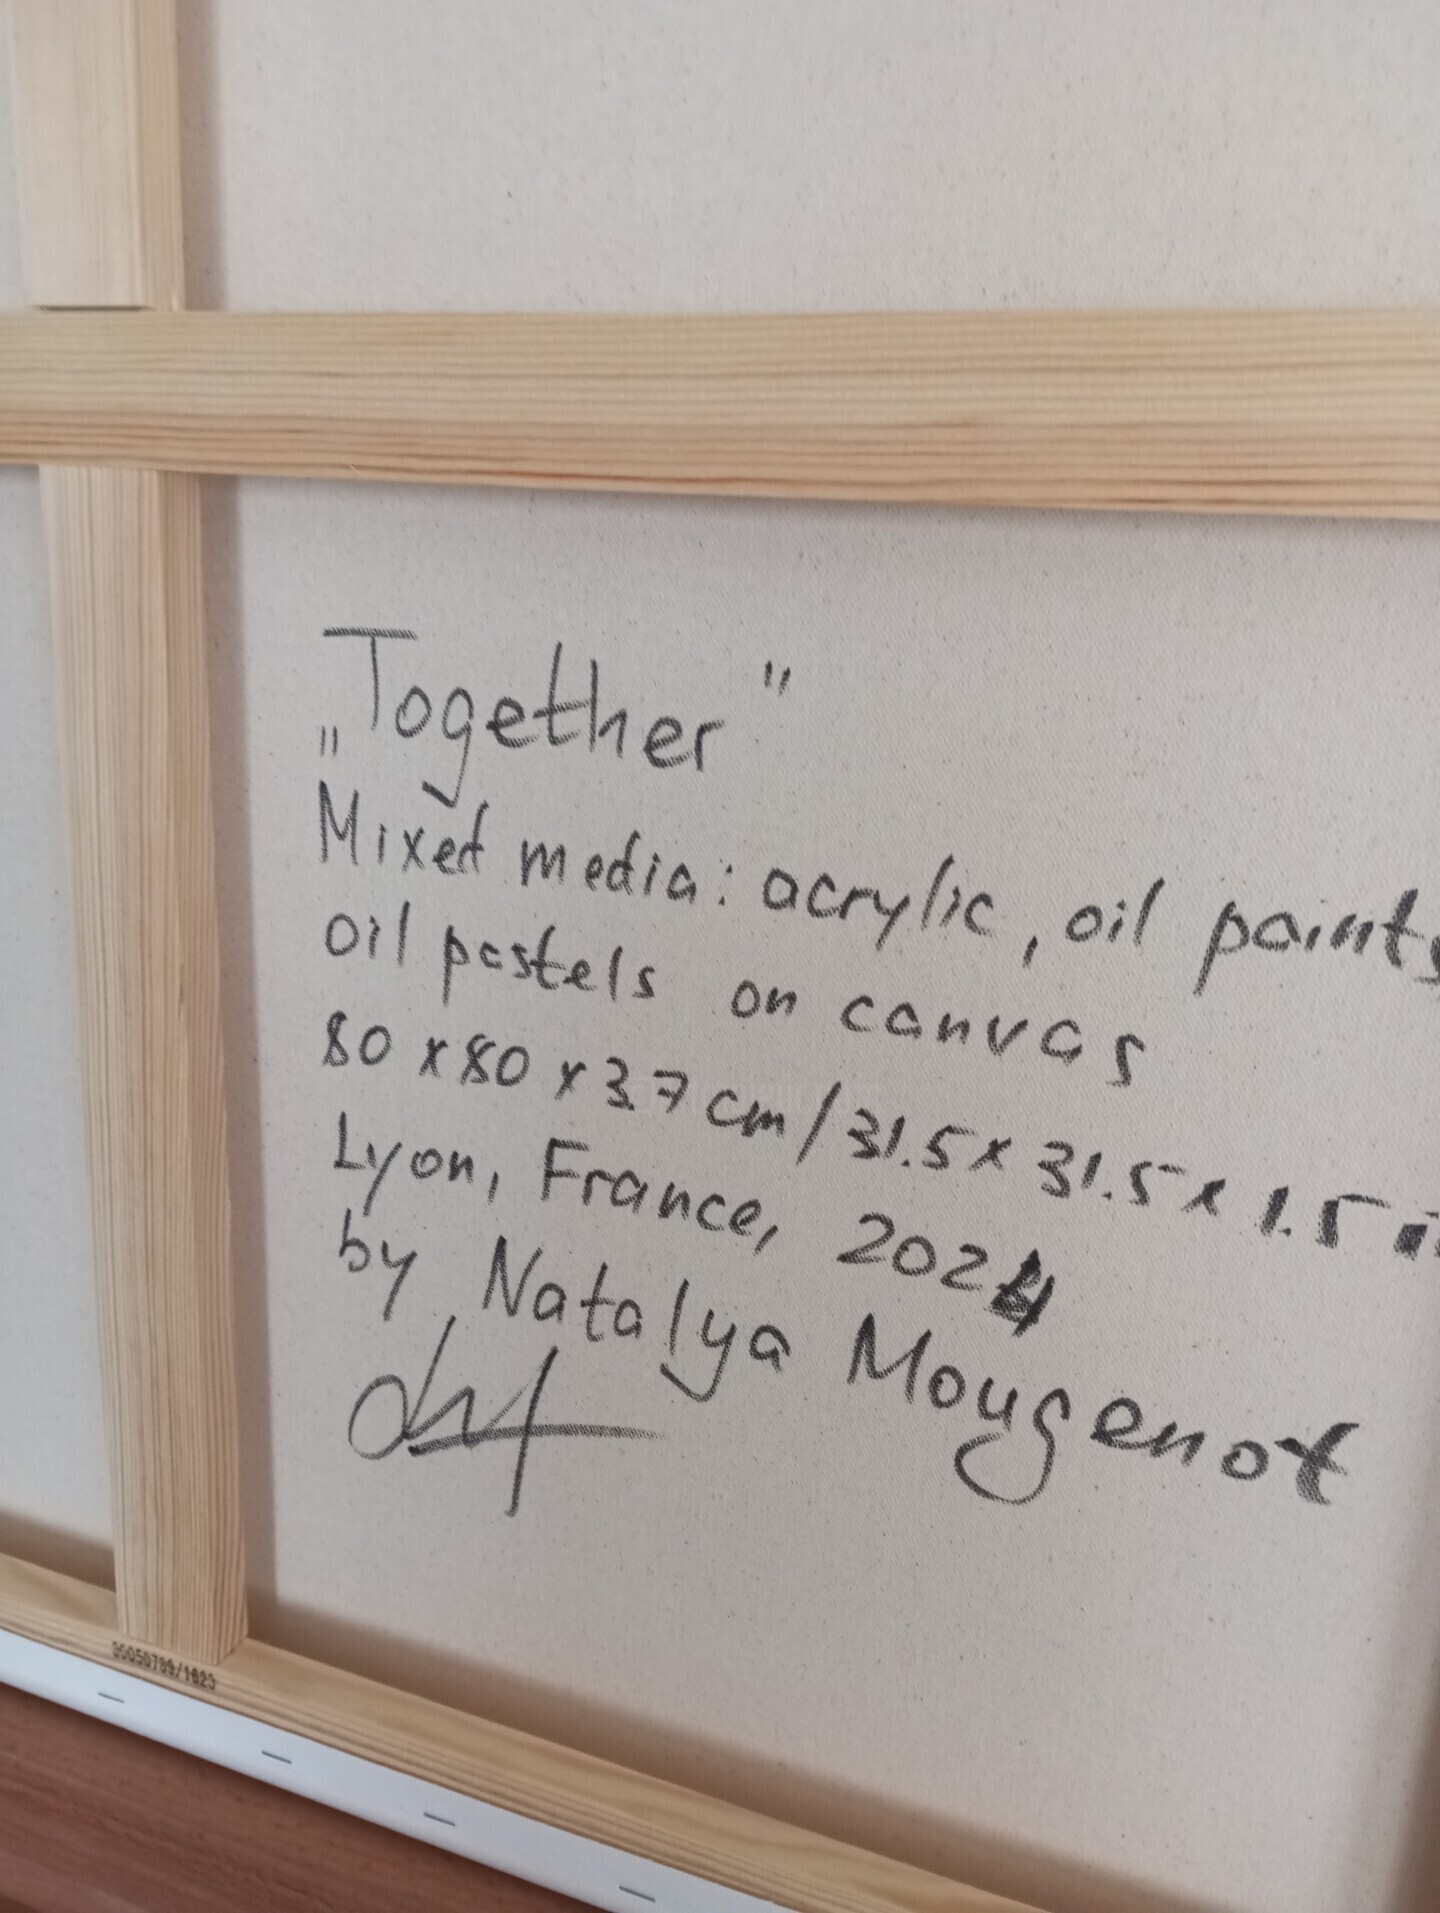 „Together"
Mixed media: acrylic, oil paints,
oil pastels on canvas
80 x 80 x 3.7 cm / 31.5 x 31.5 x 1.5 in
Lyon, France, 2024
by Natalya Mougenot